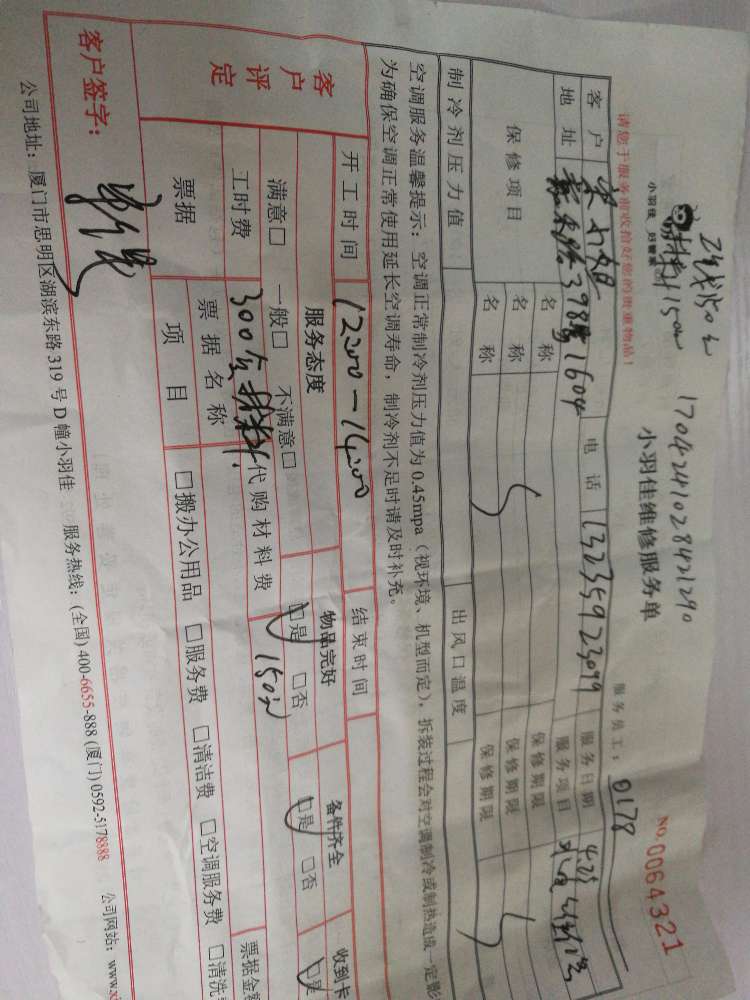 24线150元
材料150元
1704241028421290
小羽佳 好管家
小羽佳维修服务单
NO.0064321
请您于服务前收拾好您的贵重物品！
服务员工：0178
客户 电话 13235923099 服务日期 4.25
地址 398号1604 服务项目
保修项目 名称 保修期限
名称 保修期限
名称 保修期限
制冷剂压力值 出风口温度
空调服务温馨提示：空调正常制冷剂压力值为0.45mpa（视环境、机型而定），拆装过程会对空调制冷或制热造成一定影
为确保空调正常使用延长空调寿命，制冷剂不足时请及时补充。
开工时间 12:00-14:00 结束时间
客户评定 服务态度 物品完好 备件齐全 收到卡
满意□ 一般□ 不满意□ □是 □否 □是 □否 □是
工时费 300含材料 代购材料费 150元
票据 票据名称 □搬办公用品 □服务费 □清洁费 □空调服务费 □清洗 票据金额
项目
客户签字：
公司地址：厦门市思明区湖滨东路319号D幢小羽佳 服务热线：(全国) 400-6655-888 (厦门) 0592-5178888 公司网站：www.xi